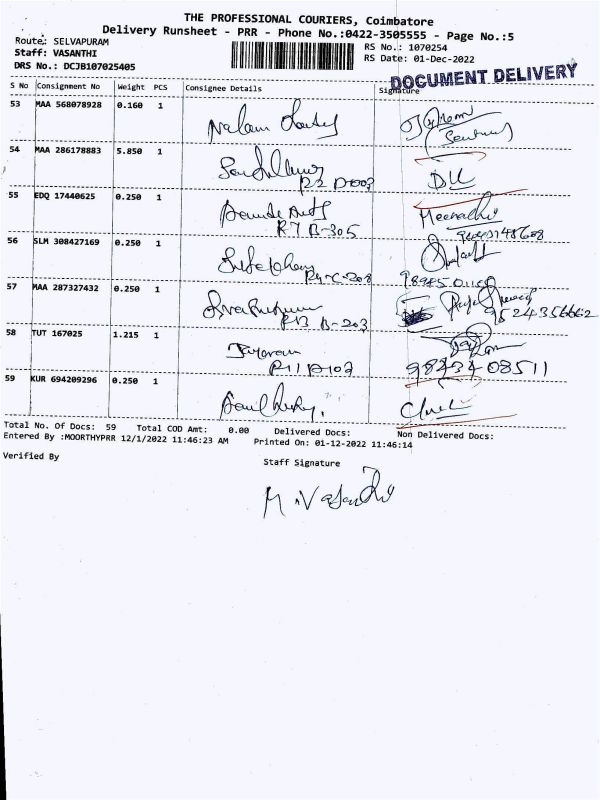 THE PROFESSIONAL COURIERS, Coimbatore
Delivery Runsheet - PRR - Phone No.:0422-3505555 - Page No.:5
Route: SELVAPURAM
Staff: VASANTHI
DRS No.: DCJB107025405
RS No.: 1070254
RS Date: 01-Dec-2022
DOCUMENT DELIVERY
S No Consignment No Weight PCS Consignee Details Signature
53 MAA 568078928 0.160 1
54 MAA 286178883 5.850 1
55 EDQ 17440625 0.250 1
R7 B-305
Meenakshi
56 SLM 308427169 0.250 1
57 MAA 287327432 0.250 1
R13 B-203
9524356662
58 TUT 167025 1.215 1
Jayaram
R11 D102
98434 08511
59 KUR 694209296 0.250 1
Total No. Of Docs: 59 Total COD Amt: 0.00 Delivered Docs: Non Delivered Docs:
Entered By :MOORTHYPRR 12/1/2022 11:46:23 AM Printed On: 01-12-2022 11:46:14
Verified By
Staff Signature
M. Vasanthi